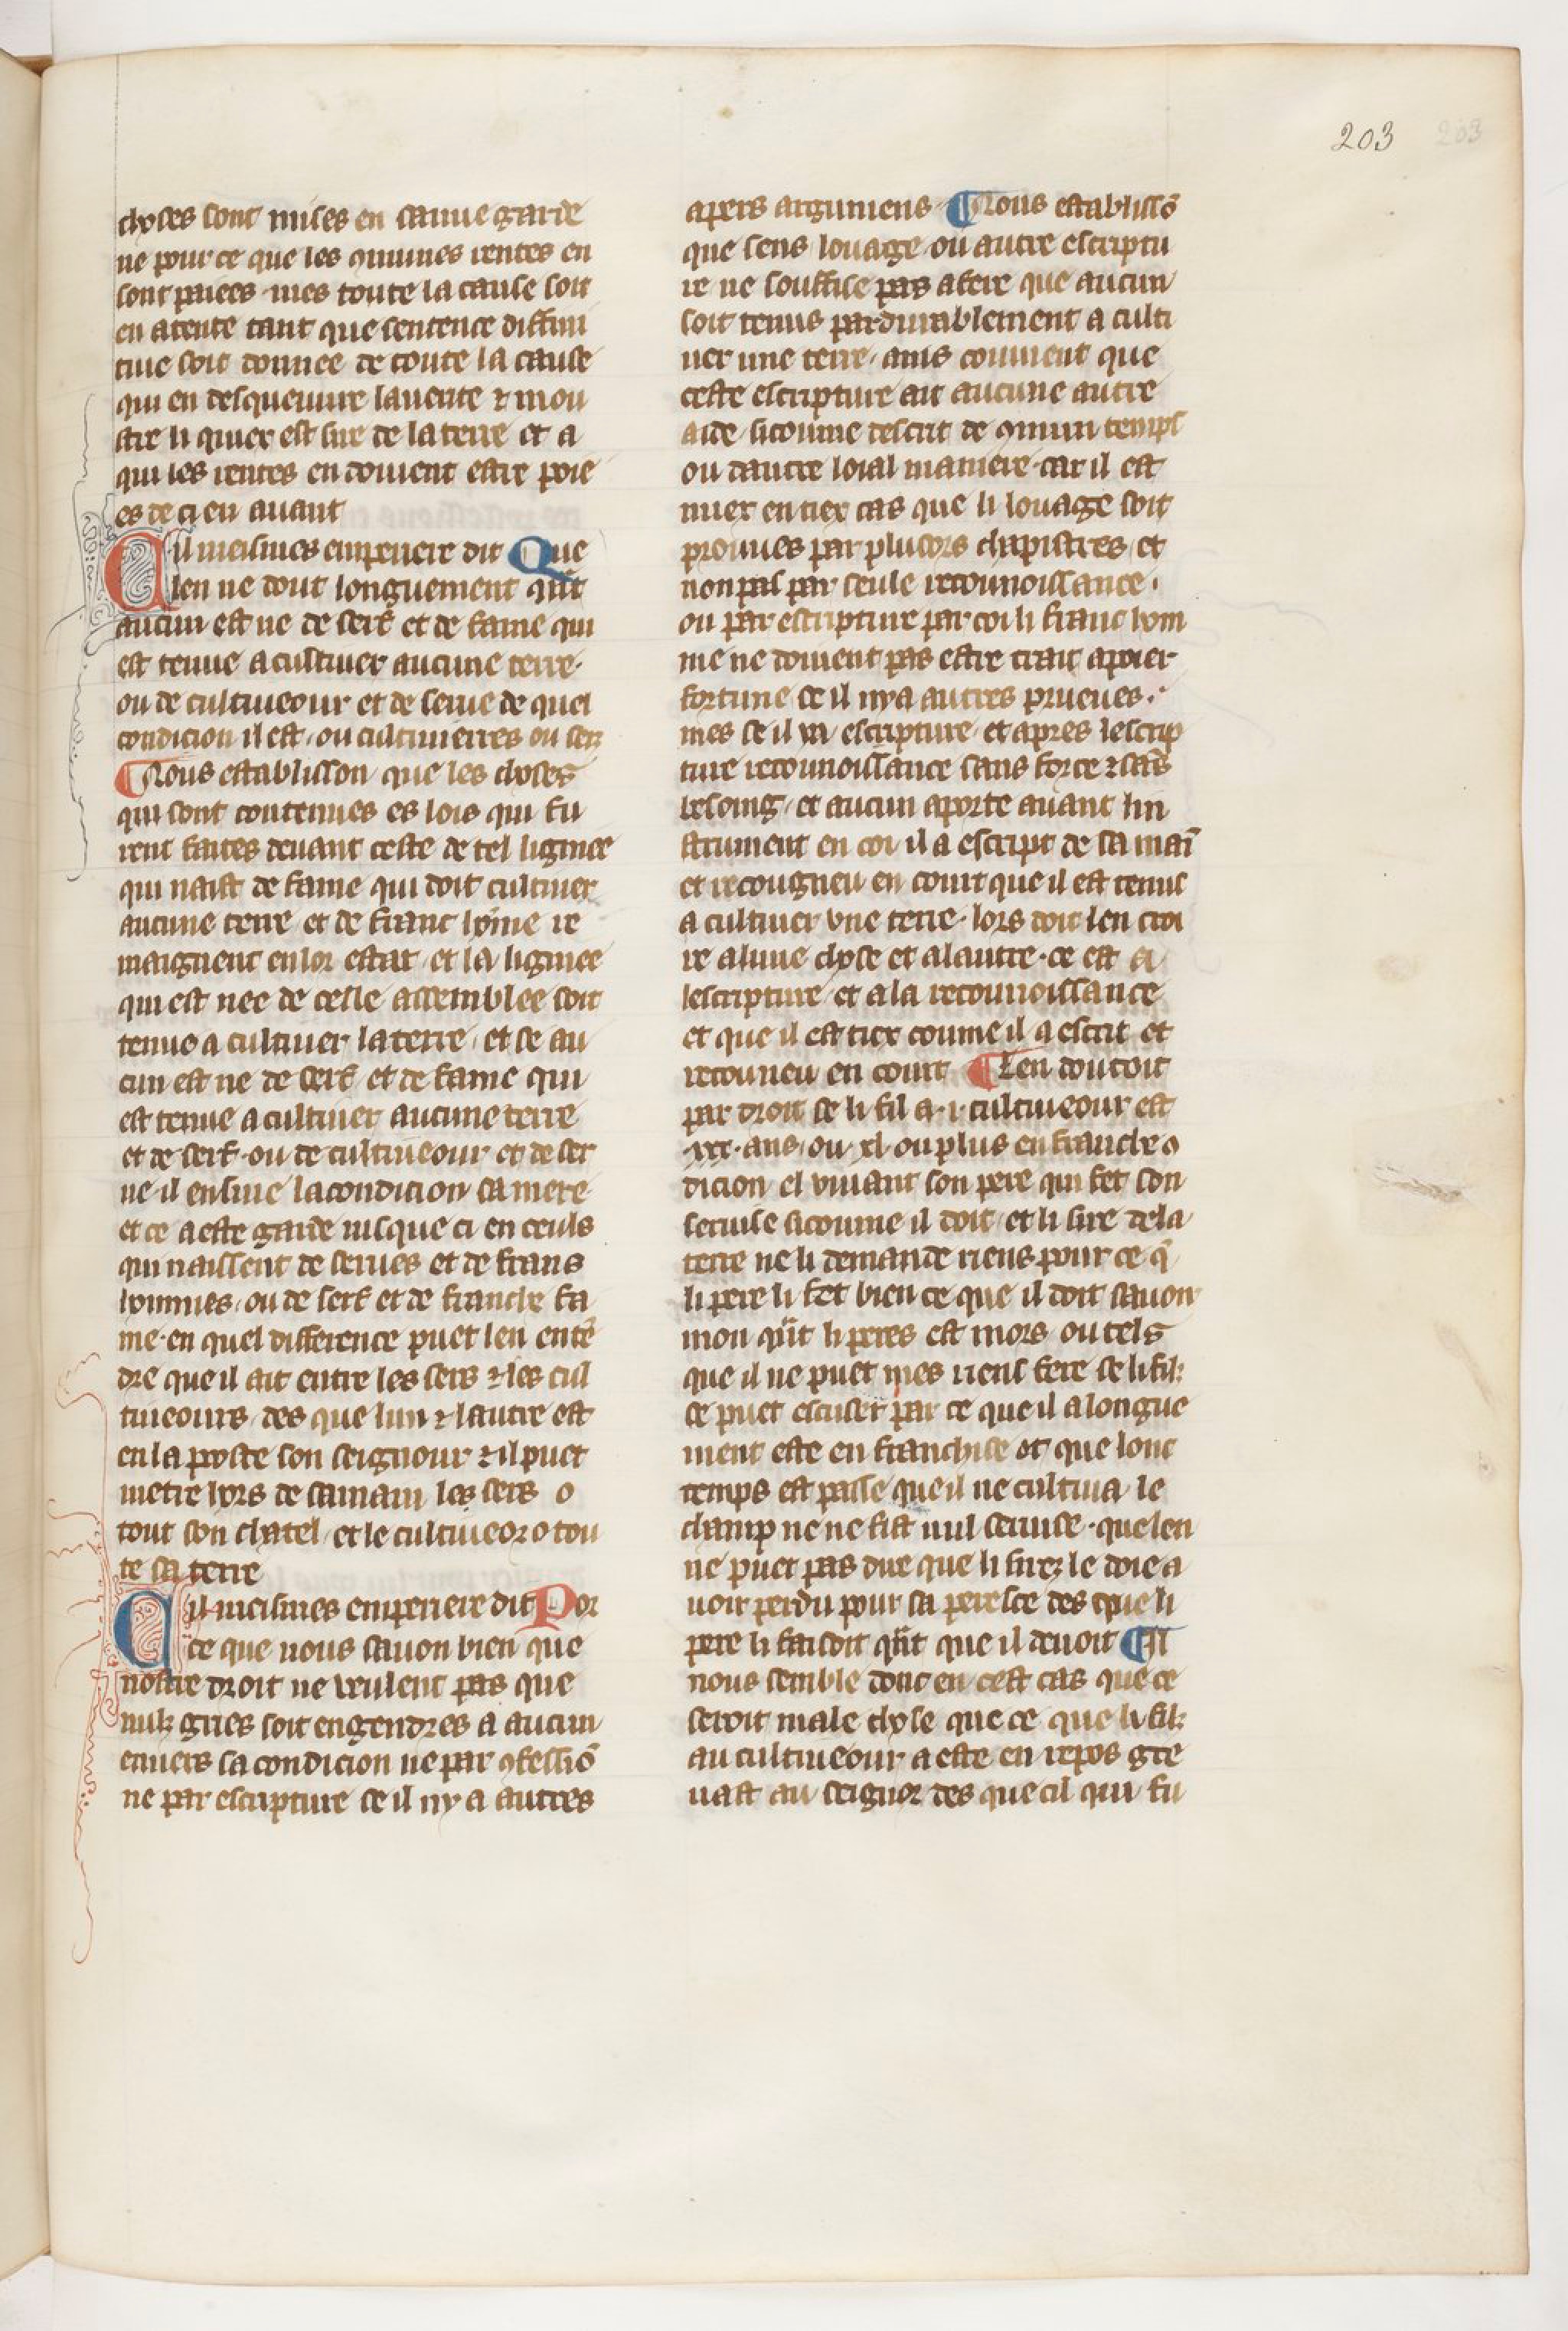 203
choses sont mises en sauue garde
ne pour ce que les ꝯmunes rentes en
sont paiees mes toute la cause soit
en atente tant que sentence diffini
tiue soit donnee de toute la cause
qui en desqueuure lauerite ⁊ mou
stre li quiex est sire de la terre et a
qui les rentes en doiuent estre poie
es de ci en auant
Cil meismes emperiere dit Que
len ne dout longuement qñt
aucun est ne de serf et de fame qui
est tenue a cultiuer aucune terre.
ou de cultiueour et de serue de quel
condicion il est, ou cultiuierres ou serz
¶ Nous establisson que les choses
qui sont contenues es lois qui fu
rent faites deuant ceste de tel lignier
qui naist de fame qui doit cultiuer
aucune terre et de franc hōme re
maignent en lor estat, et la lignee
qui est nee de celle assemblee soit
tenue a cultiuer la terre, et se au
cun est ne de serf et de fame qui
est tenue a cultiuer aucune terre
et de serf. ou de cultiueour et de ser
ue il ensiue la condicion sa mere
et ce a este garde iusque ci en ceuls
qui naissent de serues et de frans
hommes, ou de serf et de franche fa
me. en quel difference puet len entē
dre que il ait entre les sers ⁊ les cul
tiueours, des que lun ⁊ lautre est
en la poste son seignour ⁊ il puet
metre hors de sa main les sers o
tout son chatel, et le cultiueor o tou
te sa terre
Cil meismes emperiere dit Por
ce que nous sauon bien que
nostre droit ne veulent pas que
nulz gries soit engendres a aucun
enuers sa condicion ne par ꝯfessiō
ne par escripture se il ny a autres
apers argumens ¶ Nous establissō
que sens louage ou autre escriptu
re ne souffise pas a fere que aucun
soit tenus pardurablement a culti
uer une terre, ains conuient que
ceste escripture ait aucune autre
aide, sicomme descrit de ꝯmun temps
ou dautre loial maniere. car il est
miex en tiex cas que li louage soit
prouues par plusors chapistres, et
non pas par seule recounoissance.
ou par escripture par coi li franc hom
me ne doiuent pas estre trait a poier
fortune se il nya autres prueues.
mes se il ya escripture, et apres lescrip
ture recounoissance sans force ⁊ sās
besoing, et aucun aporte auant lin
strument en coi il a escript de sa mai
et recougneu en court que il est tenus
a cultiuer vne terre. lors doit len croi
re a lune chose et a lautre. ce est a
lescripture et a la recounoissance
et que il est tiex coume il a escrit et
recouneu en court ¶ Len doutoit
par droit se li fil a .i. cultiueour est
.xxx. ans, ou .xl. ou plus en franche ꝯ
dicion el viuant son pere qui fet son
seruise sicoume il doit, et li sire de la
terre ne li demande riens pour ce q̄
li pere li fet bien ce que il doit sauoir
mon qñt li peres est mors ou tels
que il ne puet mes riens fere se li filz
se puet escuser par ce que il a longue
ment este en franchise et que lonc
temps est passe que il ne cultiua le
champ ne ne fist nul seruise. que len
ne puet pas dire que li sirez le doie a
uoir perdu pour sa peresce des que li
pere li faisoit qñt que il deuoit ¶ Il
nous semble donc en cest cas que ce
seroit male chose que ce que li filz
au cultiueour a este en repos gre
uast au seignor des que cil qui fu